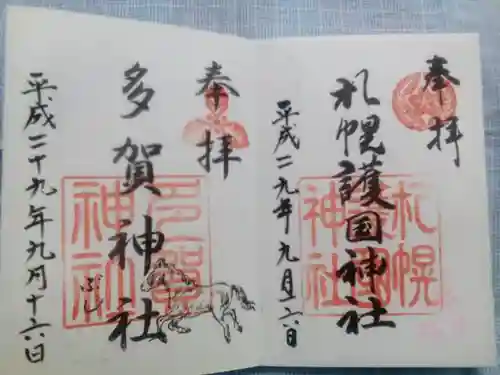 奉拝
札幌護国神社
平成二九年九月一六日
札幌
護國
神社
奉拝
多賀神社
平成二十九年九月十六日
多賀
神社